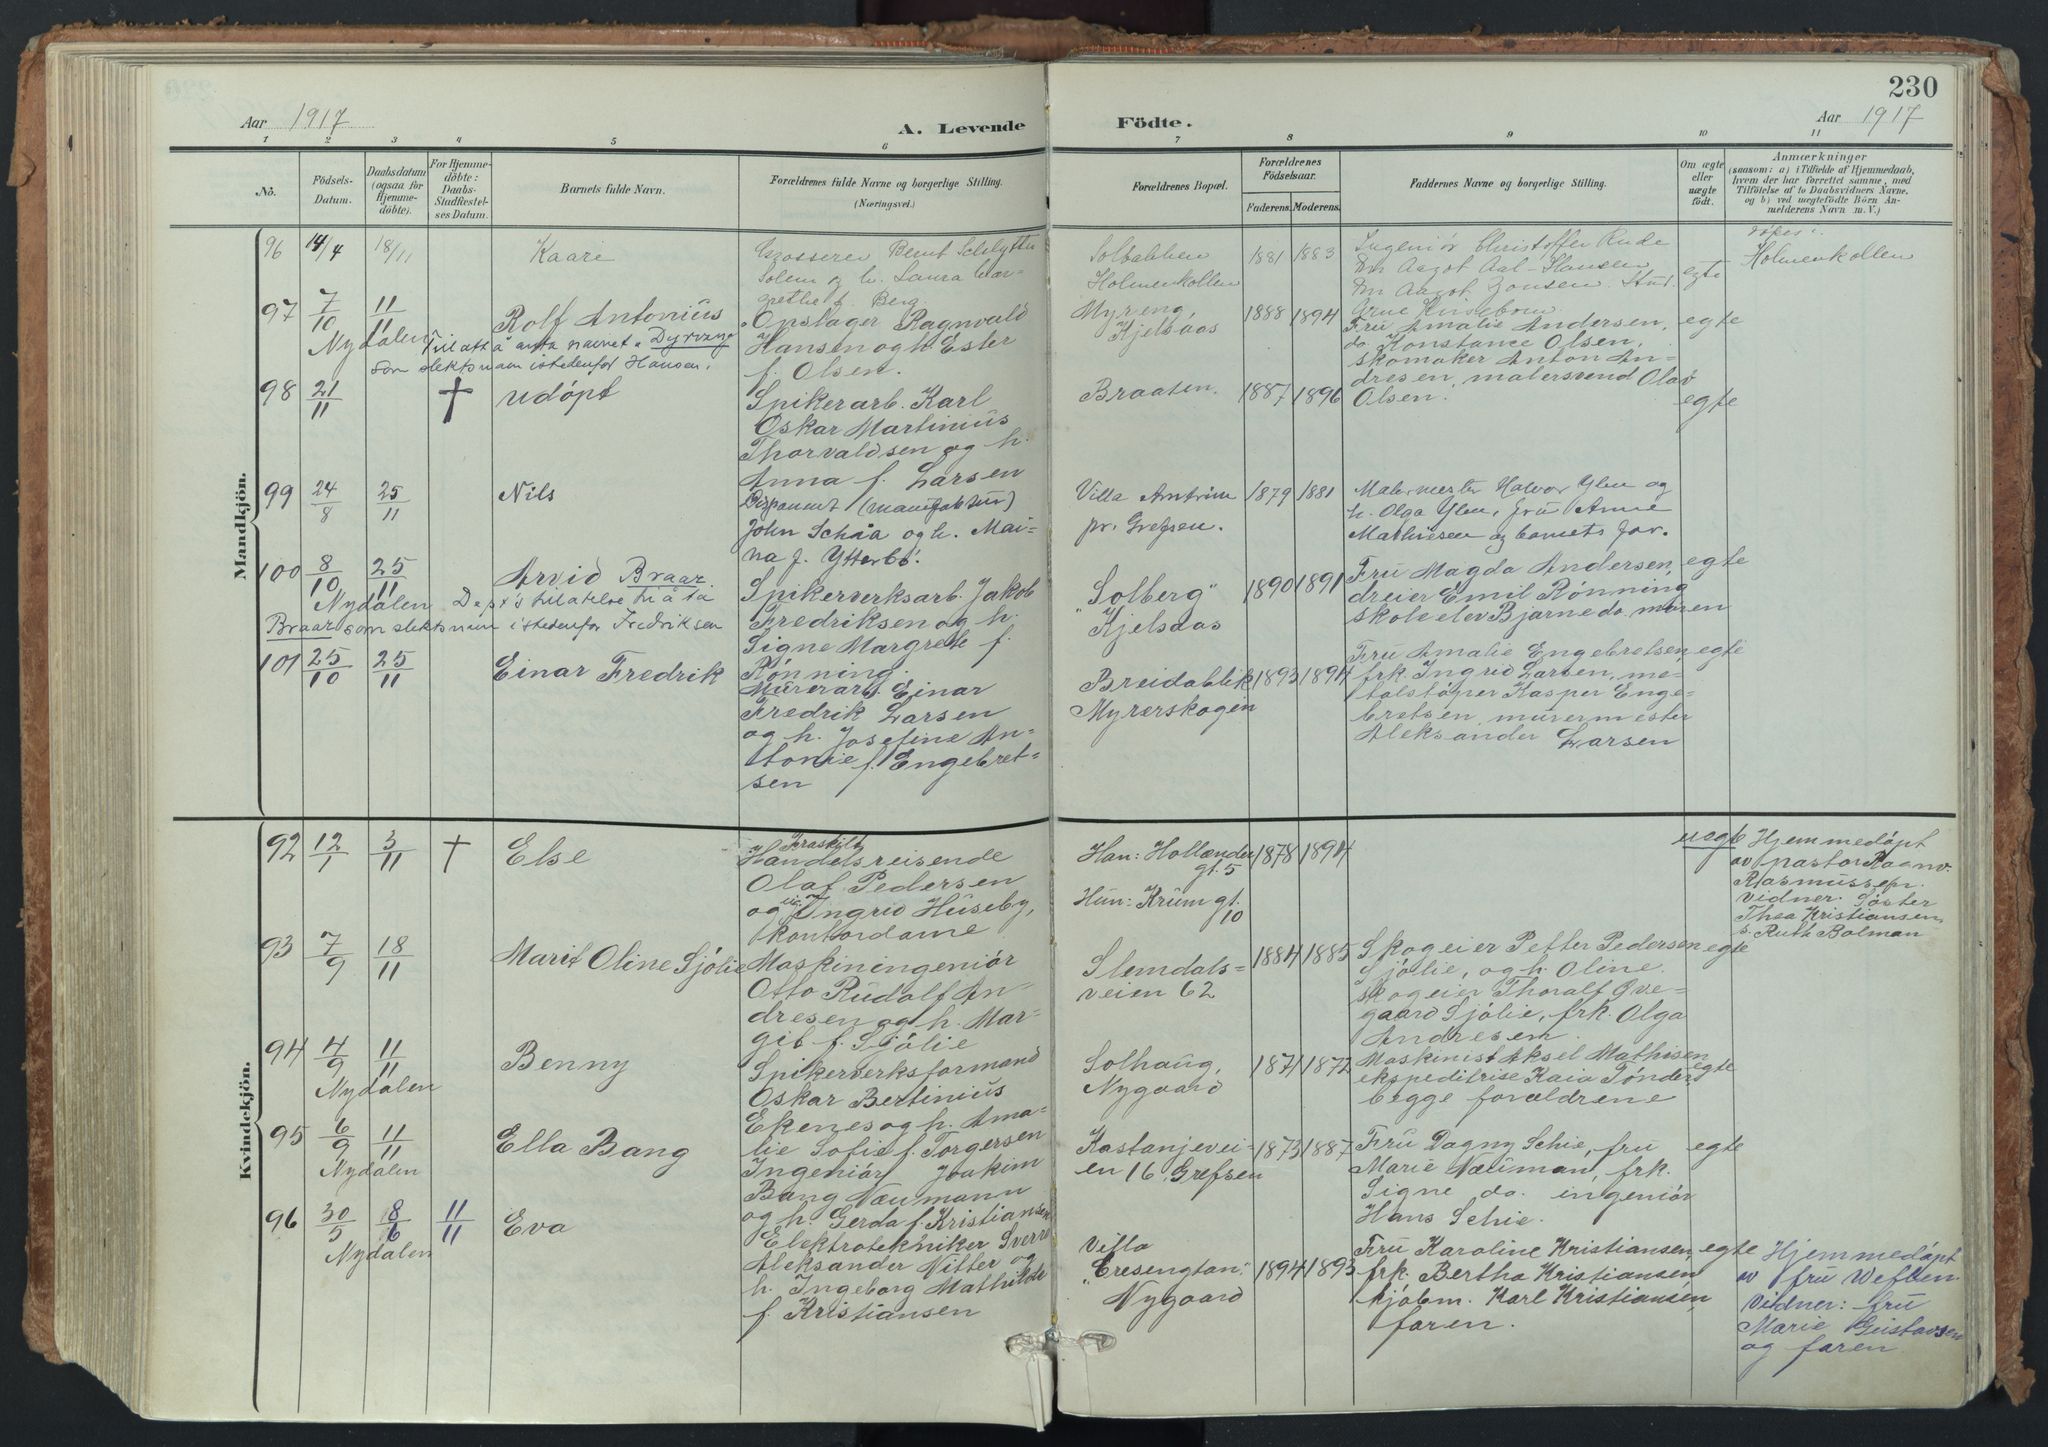 230
Aar 1917
A. Levende
Födte.
Aar 1917
1 2 3 4 5 6 7 8 9 10 11
No.
Födsels-Datum.
Daabsdatum (ogsaa for Hjemme-döbte).
For Hjemme-döbte: Daabs-Stadfæstel-ses Datum.
Barnets fulde Navn.
Forældrenes fulde Navne og borgerlige Stilling.
(Næringsvei.)
Forældrenes Bopæl.
Forældrenes Födselsaar.
Faderens. Moderens.
Faddernes Navne og borgerlige Stilling.
Om ægte eller uægte födt.
Anmærkninger
(saasom: a) i Tilfælde af Hjemmedaab,
hvem der har forrettet samme, med
Tilföielse af to Daabsvidners Navne,
og b) ved uægtefödte Börn An-
melderens Navn m. V.)
Mandkjön.
96 14/4 18/11 Kaare
Grosserer Bernt
Solem og h. Laura Mar-
grethe f. Berg.
Solbakken
Holmenkollen
1881 1883
Ingeniör Christoffer Rude
Aagot Aal-Hansen
Aagot Jonsen. Stud.
Arne
egte
Holmenkollen
97 7/10 11/11 Rolf Antonius
Nydalen
Tillatt å anta navnet "Dyrvang"
som slektsnavn istedenfor Hansen.
Opslager Ragnvald
Hansen og h. Ester
f. Olsen.
Myreng,
Kjelsaas
1888 1894
Fru Amalie Andersen,
do. Konstance Olsen,
skomaker Anton An-
dresen, malersvend Olav
Olsen.
egte
98 21/11 † udöpt
Spikerarb. Karl
Oskar Martinius
Thorvaldsen og h.
Anna f. Larsen
Braaten.
1887 1896
egte
99 24/8 25/11 Nils
Disponent (manufaktur)
John Schaa og h. Mai-
na f. Ytterbö.
Villa Antrim
pr. Grefsen.
1879 1881
Malermester Halvor Ylen og
h. Olga Ylen, fru Anne
Mathiesen og barnets far.
100 8/10 25/11 Arvid Braar.
Nydalen Dep's tilatelse til å ta
Braar som slektsnavn istedenfor Fredriksen
Spikerverksarb. Jakob
Fredriksen og h.
Signe Margrete f.
Rönning.
"Solberg"
Kjelsaas
1890 1891
Fru Magda Andersen,
dreier Emil Rönning
skoleelev Bjarne do. moren
egte
101 25/10 25/11 Einar Fredrik
Murerarb. Einar
Fredrik Larsen
og h. Josefine An-
tonie f. Engebret-
sen
Breidablik
Myrerskogen
1893 1894
Fru Amalie Engebretsen,
frk. Ingrid Larsen, me-
talstöper Kasper Enge-
bretsen, murermester
Aleksander Larsen
egte
Kvindekjön.
92 12/1 3/11 † Else
Fraskilt
Handelsreisende
Olaf Pedersen
og Ingrid Huseby,
kontordame
Han: Hollænder
gt. 5
Hun: Krum gt.
10
1878 1894
uegte
Hjemmedöpt
av pastor Ragnv.
Rasmussen.
vidner. Söster
Thea Kristiansen,
s. Ruth Bolman
93 7/9 18/11 Marit Oline Sjölie
Maskiningeniör
Otto Rudolf An-
dresen og h. Mar-
git f. Sjölie
Slemdals-
veien 62
1884 1885
Skogeier Petter Pedersen
Sjölie, og h. Oline.
skogeier Thoralf Ove-
gaard Sjölie, frk. Olga
Andresen.
egte
94 4/9 11/11 Benny
Nydalen
Spikerverksformand
Oskar Bertinius
Ekenes og h. Ama-
lie Sofie f. Torgersen
Solhaug,
Nygaard
1871 1872
Maskinist Aksel Mathisen
ekspeditrise Kaia Tönder
begge forældrene
egte
95 6/9 11/11 Ella Bang
Nydalen
Ingeniör Joakim
Bang Næumann
og h. Gerda f. Kristiansen
Kastanjevei-
en 16, Grefsen
1873 1887
Fru Dagny Schie, fru
Marie Næuman, frk.
Signe do. ingeniör
Hans Schie.
egte
96 30/5 8/6 11/11 Eva
Nydalen
Elektrotekniker Sverre
Aleksander Nitter og
h. Ingeborg Mathilde
f. Kristiansen
Villa
"Eresengtan"
Nygaard
1894 1893
Fru Karoline Kristiansen,
frk. Bertha Kristiansen
kjöbm. Karl Kristiansen,
faren.
egte
Hjemmedöpt
av fru
Vidner: fru
Marie Gustavsen
og faren